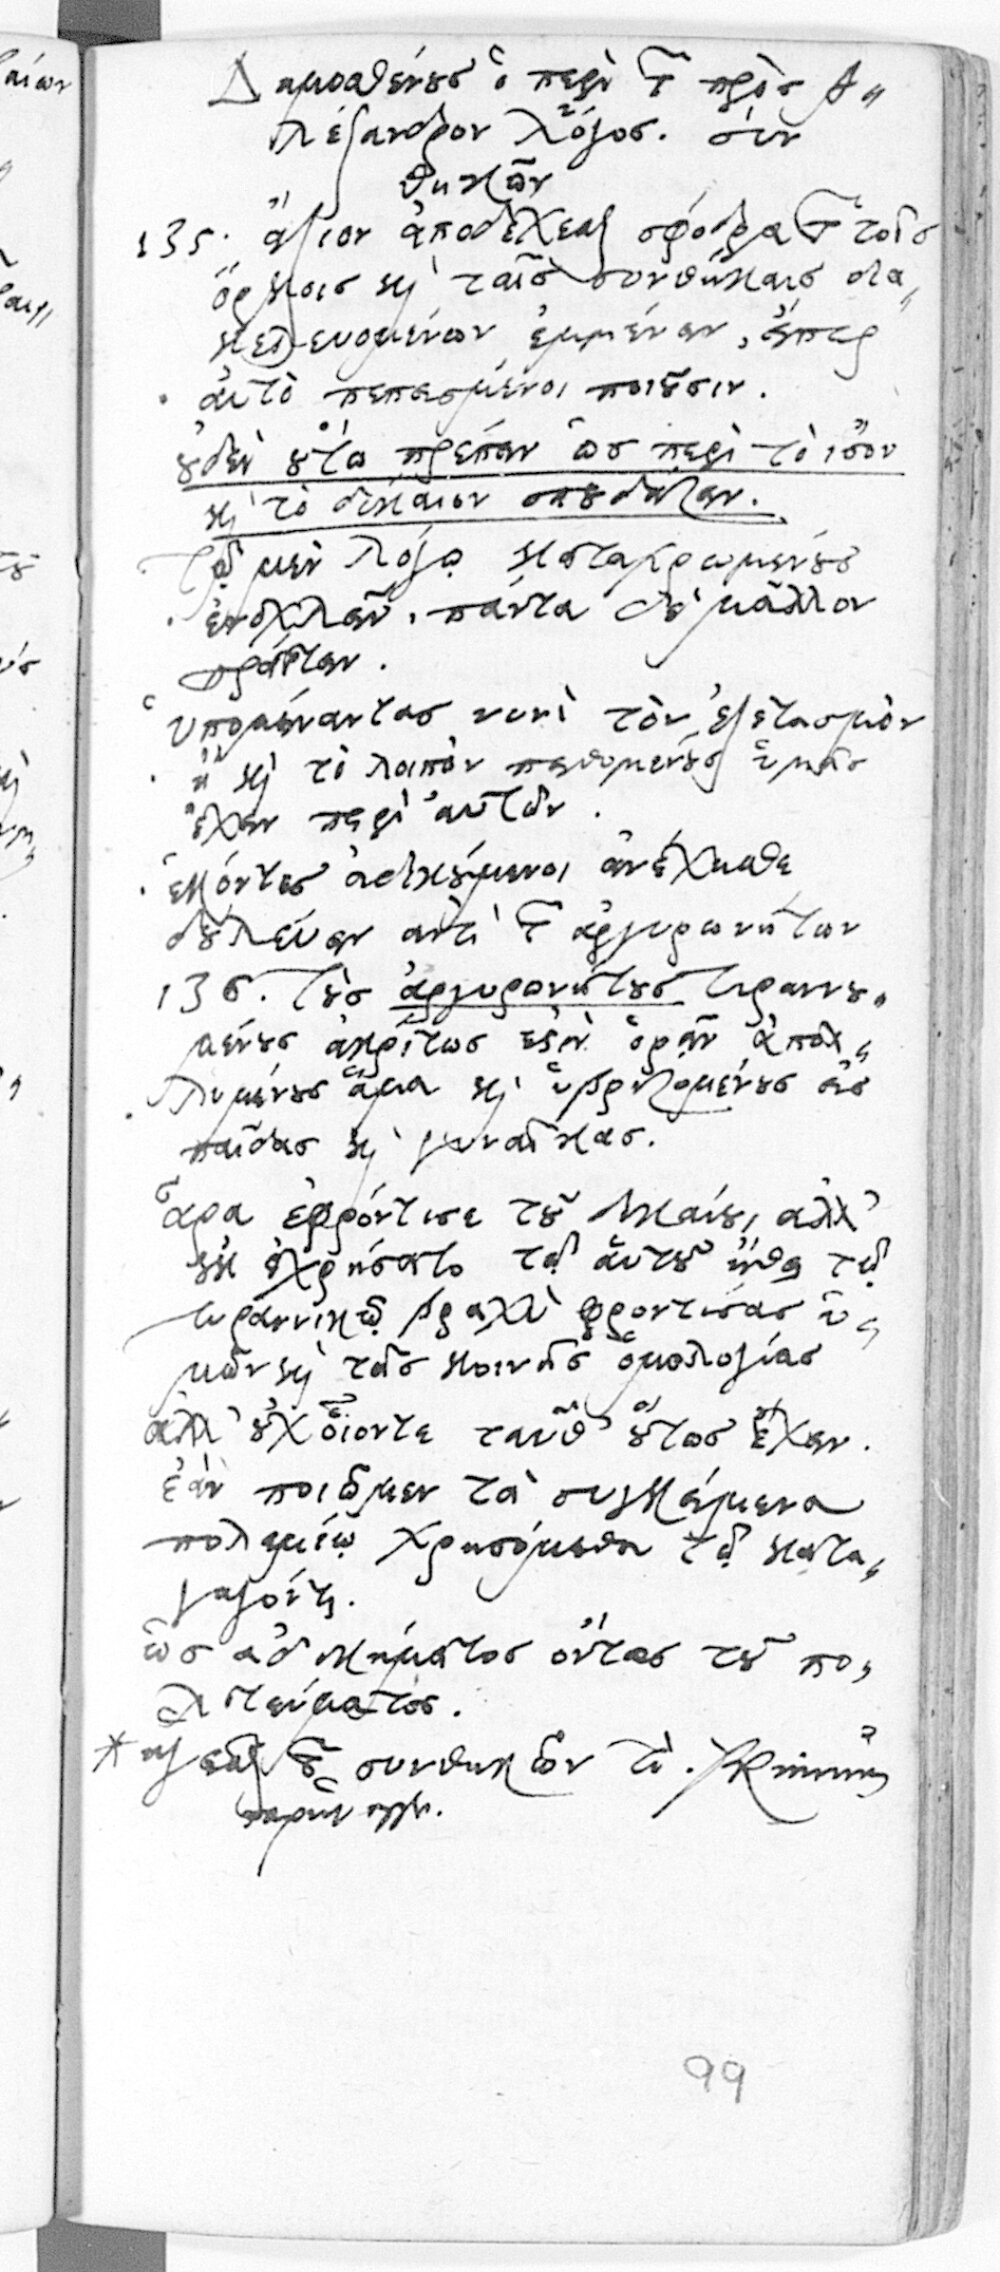 Δημοσθένους ὁ περὶ τῶν πρὸς Ἀ„
λέξανδρον λόγος. συν
θηκῶν
135. ἄξιον ἀποδέχεσθαι σφόδρα τῶν τοῖς
ὅρκοις καὶ ταῖς συνθήκαις δια„
κελευομένων ἐμμένειν, εἴπερ
αὐτὸ πεπεισμένοι ποιοῦσιν.
οὐδὲν οὕτω πρέπειν ὡς περὶ τὸ ἴσον
καὶ τὸ δίκαιον σπουδάζειν.
τῷ μὲν λόγῳ καταχρωμένους
ἐνοχλεῖν. πάντα δὲ μᾶλλον
πράττειν.
ὑπομείναντας νυνὶ τὸν ἐξετασμὸν
ἢ καὶ τὸ λοιπὸν πειθομένους ὑμᾶς
ἔχειν περὶ αὐτῶν.
ἑκόντες ἀδικούμενοι ἀνέχεσθε
δουλεύειν ἀντὶ τῶν ἀργυρωνήτων
136. τοὺς ἀργυρωνήτους τυραννου„
μένους ἀκρίτως ἔστιν ὁρᾶν ἀπολ„
λυμένους ἅμα καὶ ὑβριζομένους εἰς
παῖδας καὶ γυναῖκας.
ἆρα ἐφρόντισε τοῦ δικαίου, ἀλλ'
οὐκ ἐχρήσατο τῷ αὑτοῦ ἤθει τῷ
τυραννικῷ βραχὺ φροντίσας ὑ„
μῶν καὶ τῆς κοινῆς ὁμολογίας
ἀλλ' οὐχ οἷόντε ταῦθ' οὕτως ἔχειν.
ἐὰν ποιῶμεν τὰ συγκείμενα
πολεμίῳ χρησόμεθα τῷ κατα„
γαγόντι.
ὡς ἀδικήματος ὄντος τοῦ πο„
λιτεύματος.
* συνθηκῶν τι.